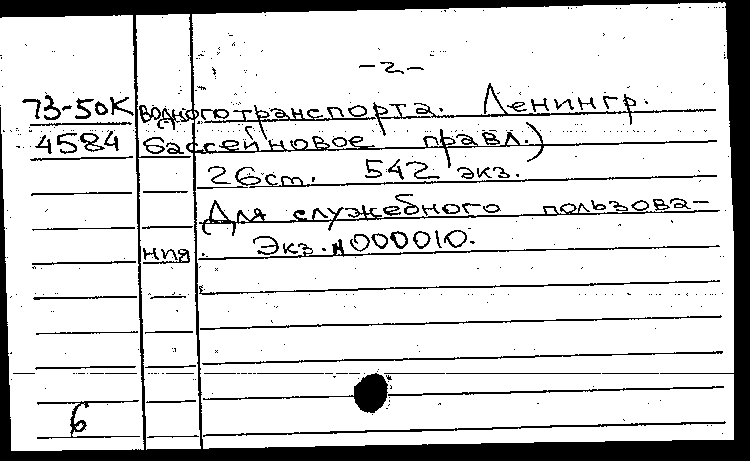 -2-
73-50К водного транспорта. Ленингр.
4584 бассейновое правл.)
26ст. 542 экз.
Для служебного пользова-
ния. Экз. №000010.
6